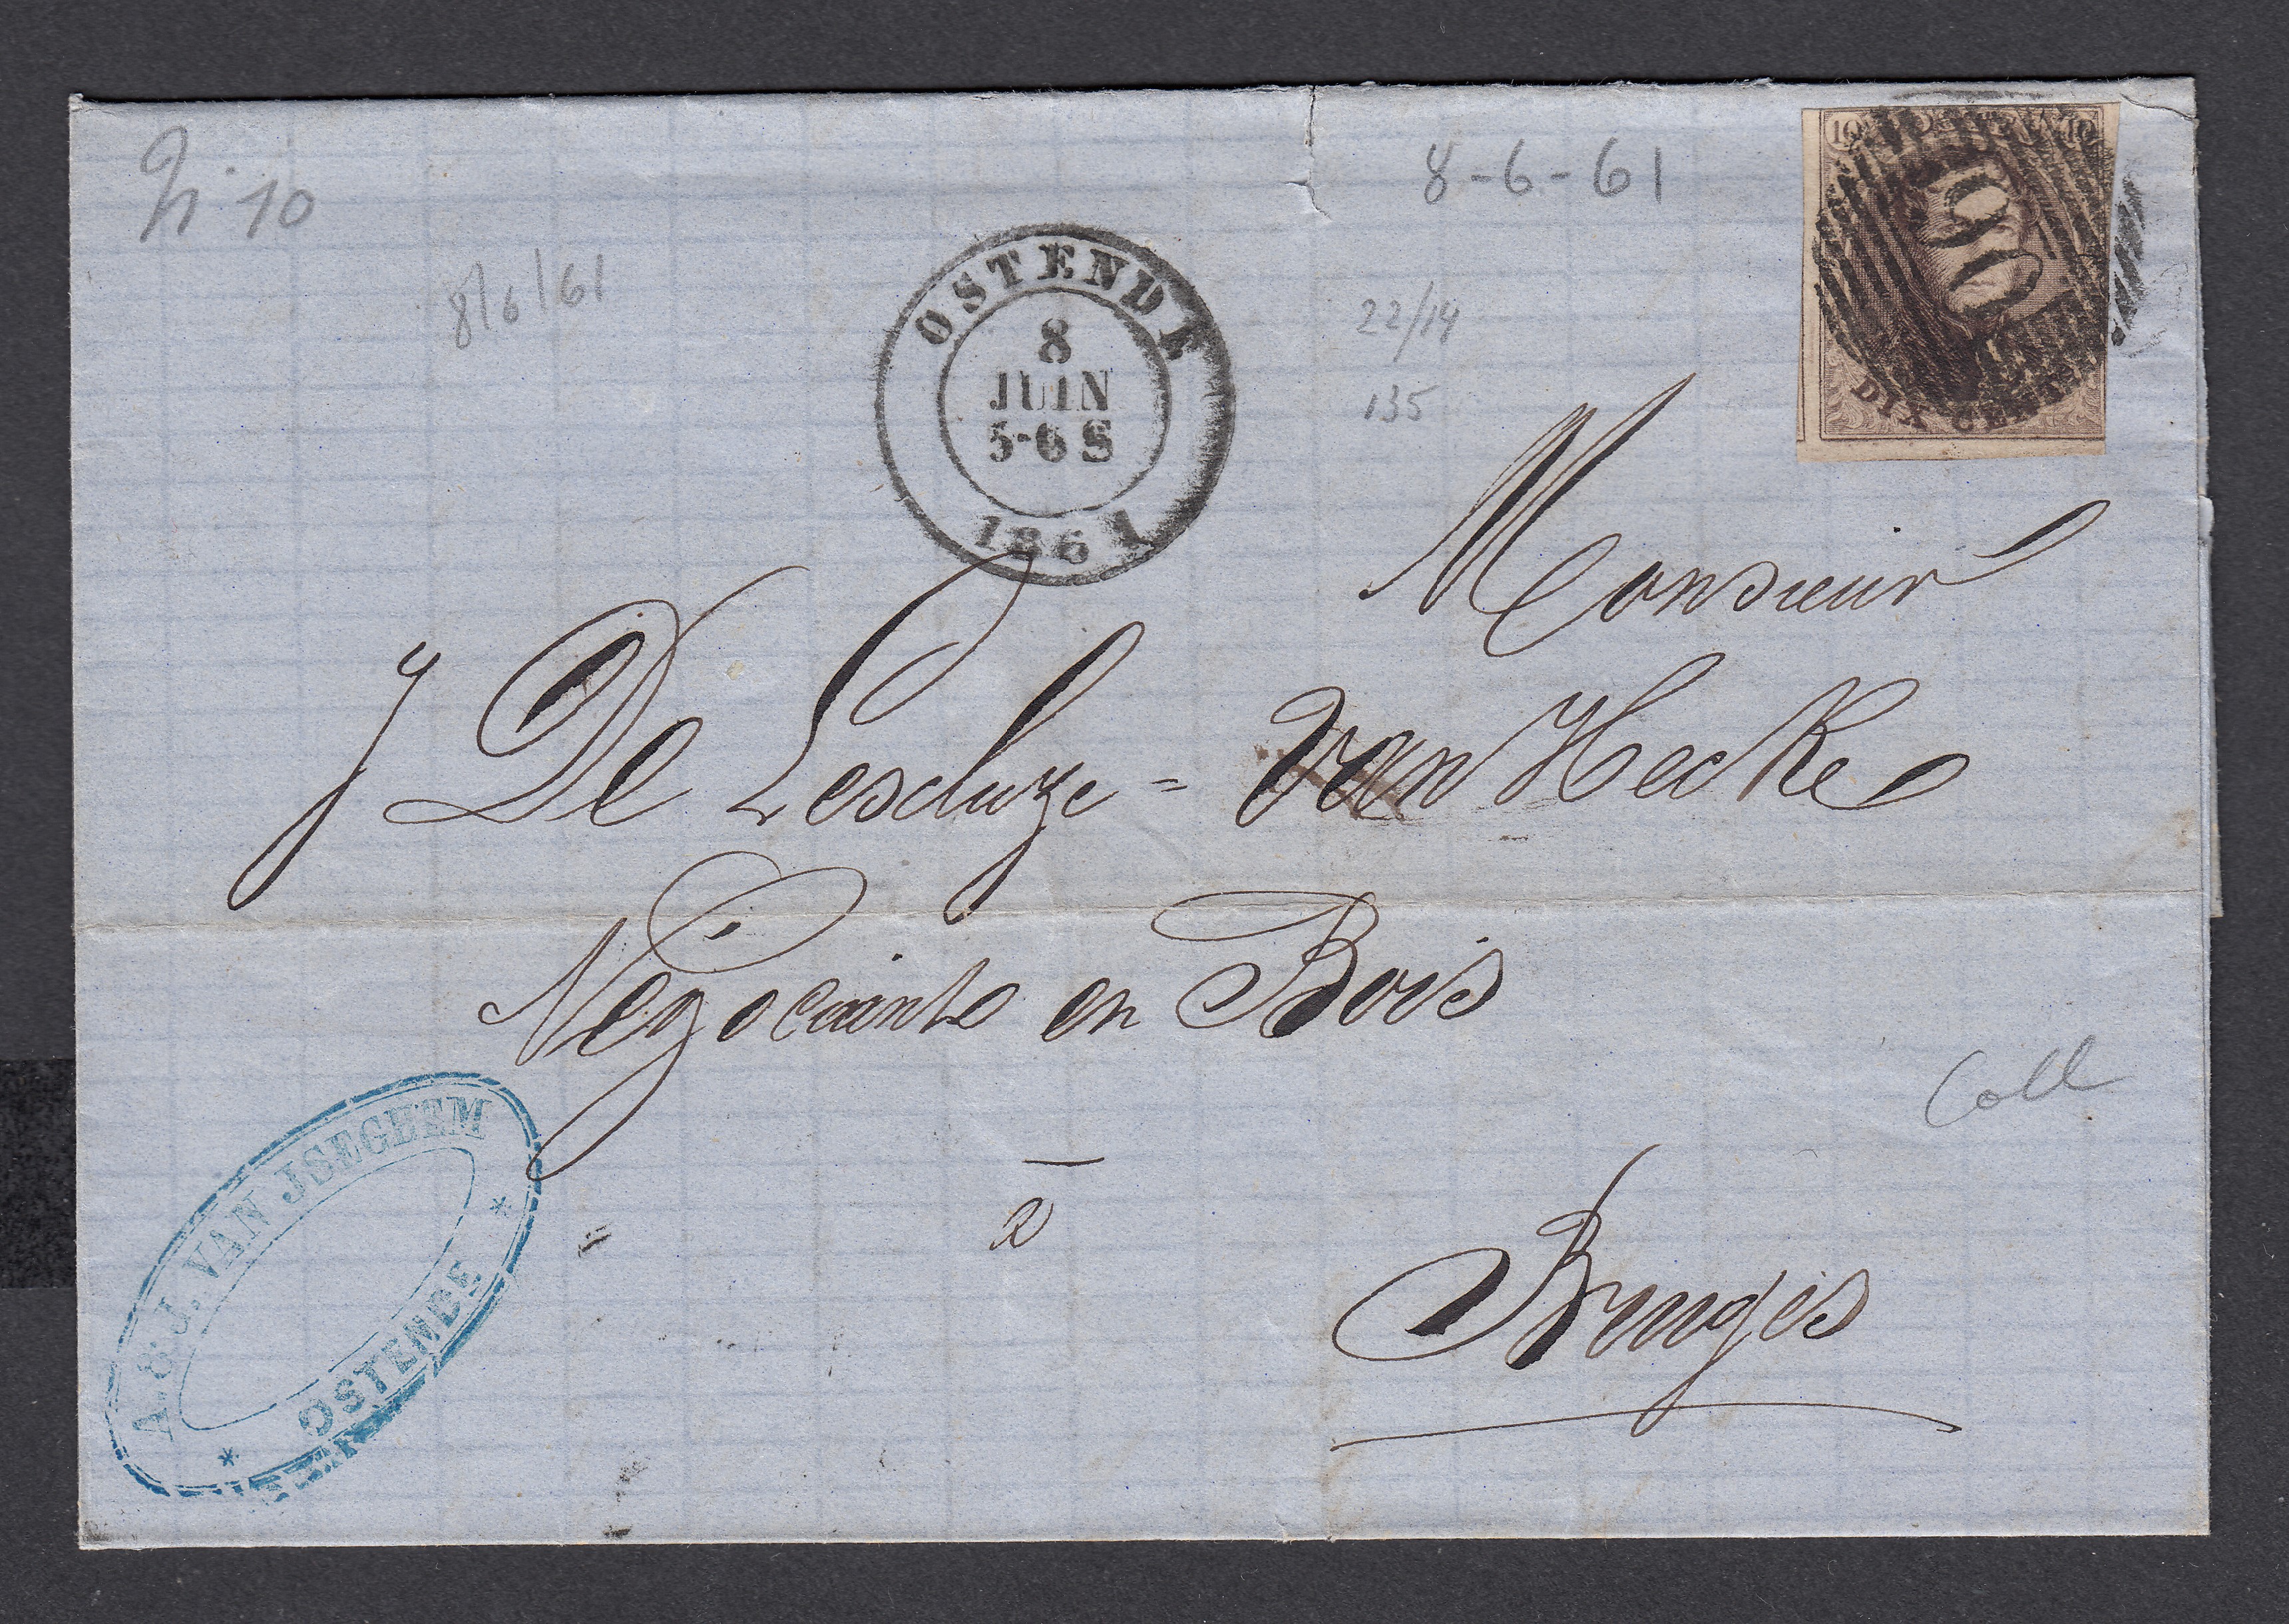 N. 10
8/6/61
OSTENDE
8
JUIN
5-6 S
1861
8-6-61
22/14
135
10 10
DIX CENT
Monsieur
J De Lescluze = Van Hecke
Négociante en Bois
à
Bruges
Coll
A. & J. VAN JSEGHEM
* OSTENDE *